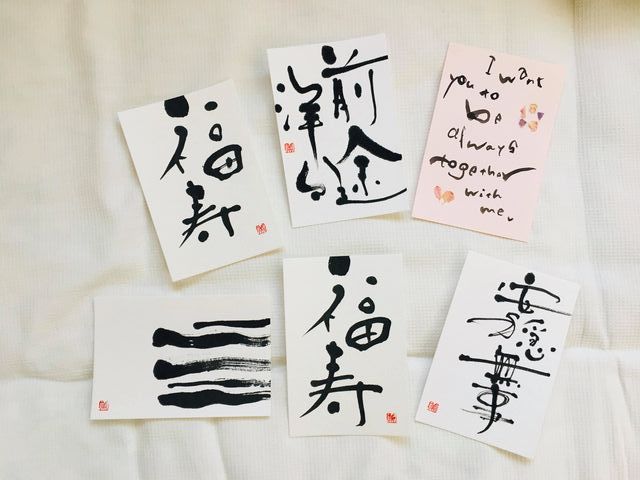 福寿
前途
洋々
I want
you to
be
always
together
with
me.
福寿
安穏無事